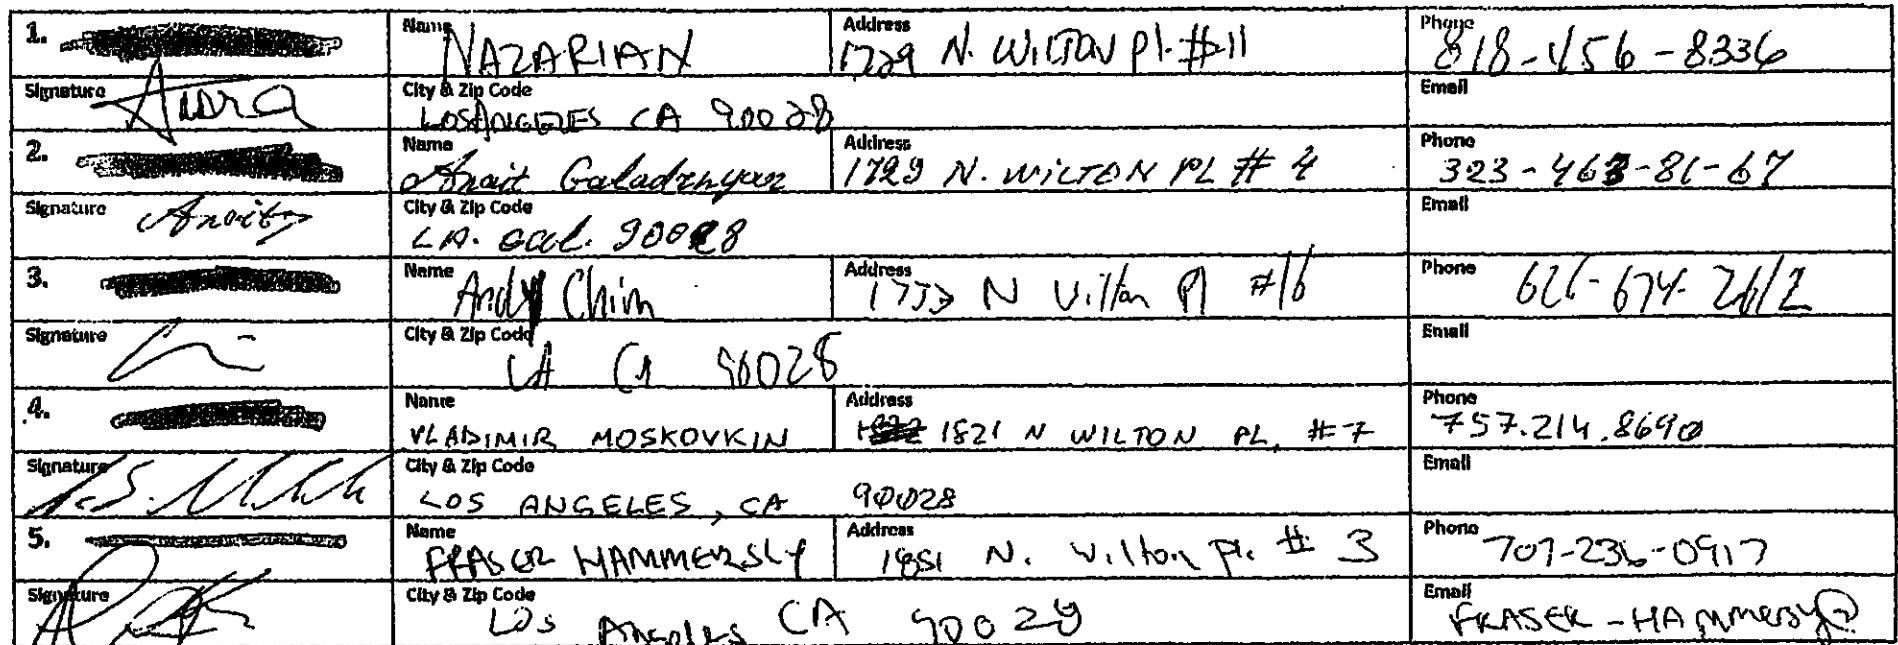 1. Name NAZARIAN Address 1729 N. WILTON Pl. #11 Phone 818-456-8336
Signature City & Zip Code LOS ANGELES CA 90028 Email
2. Name Anait Address 1729 N. WILTON PL # 4 Phone 323-463-81-67
Signature Anait City & Zip Code L.A. Cal. 90028 Email
3. Name Andy Chim Address N Wilton Pl #16 Phone 626-674-2612
Signature City & Zip Code LA CA 90028 Email
4. Name VLADIMIR MOSKOVKIN Address 1821 N WILTON PL, #7 Phone 757.214.8690
Signature City & Zip Code LOS ANGELES, CA 90028 Email
5. Name FRASER HAMMERSLY Address 1851 N. Wilton Pl. # 3 Phone 707-236-0917
Signature City & Zip Code Los Angeles CA 90028 Email